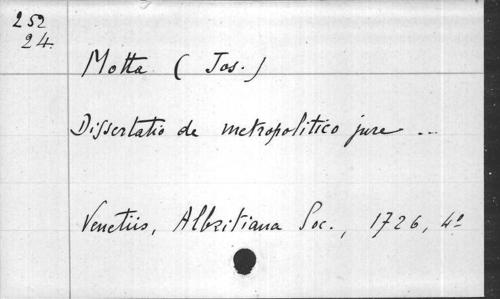 252
24.
Motta (Jos.)
Dissertatio de metropolitico jure ...
Venetiis, Albritiana Soc., 1726, 4º